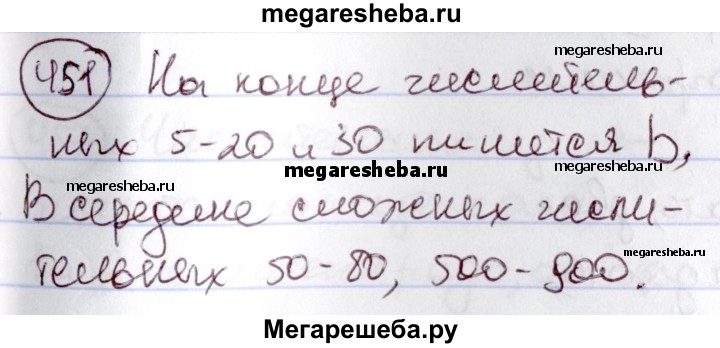 megaresheba.ru
451 На конце числитель-
megaresheba.ru
ных 5-20 и 30 пишется ь,
megaresheba.ru
megaresheba.ru
В середине сложных числи-
тельных 50-80, 500-900.
megaresheba.ru
Мегарешеба.ру